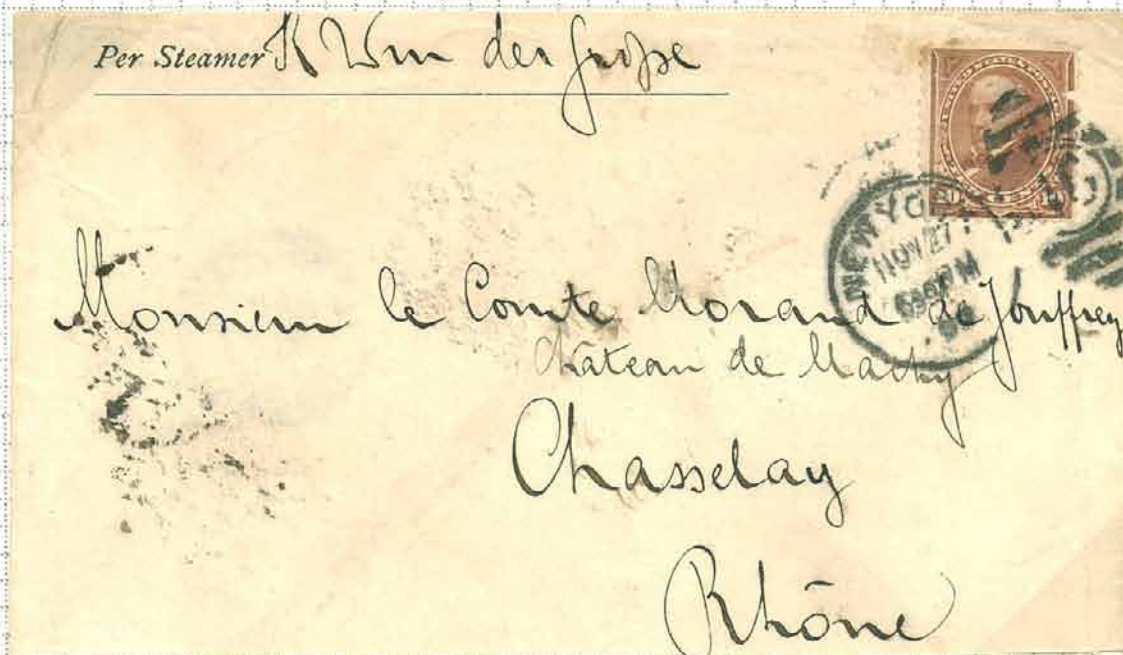 Per Steamer K Wm der Grosse
NEW YO
NOV 27
PM
Monsieur le Comte Morand de Jouffrey
Château de Machy
Chasselay
Rhône